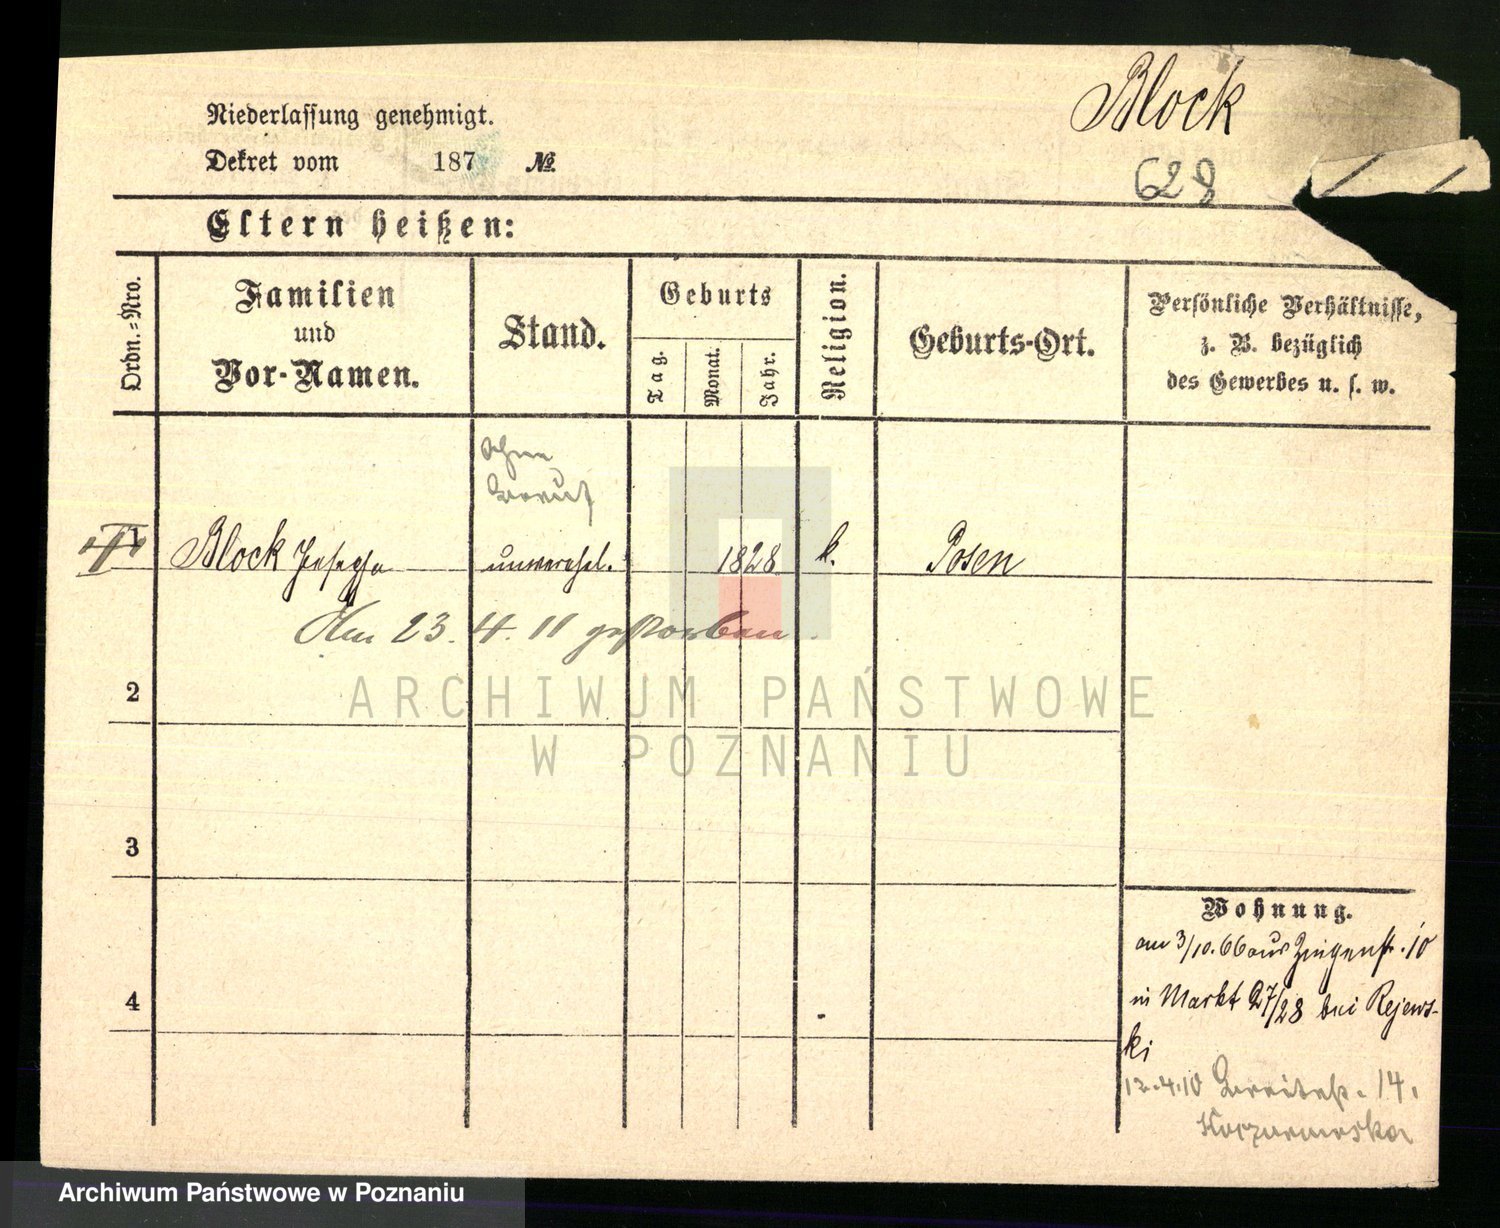 Block
628
Niederlassung genehmigt.
Dekret vom 187 №
Eltern heißen:
Ordn.=Nro.
Familien
und
Vor-Namen.
Stand.
Geburts
Tag.
Monat.
Jahr.
Religion.
Geburts-Ort.
Persönliche Verhältnisse,
z. B. bezüglich
des Gewerbes u. s. w.
ohne
Beruf
1 Block Josepha unverehel. 1828 k. Posen
Am 23. 4. 11 gestorben.
2
3
4
Wohnung.
am 3/10. 66 aus 10
in Markt 27/28 bei Rejews-
ki
12.4.10 Breitestr. 14.
ARCHIWUM PAŃSTWOWE
W POZNANIU
Archiwum Państwowe w Poznaniu